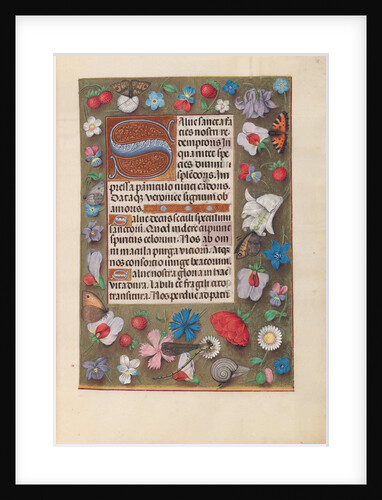 Salue sancta fa
cies nostri re
demptoris In
qua nitet spe
cies diuini
splẽdoris. Im
pressa pãniculo niuei cãdoris.
Dataqz veronice signum ob
amoris.
Salue decus seculi speculum
sanctorũ. Quod videre cupiunt
spiritus celorum. Nos ab om
ni macula purga viciorũ. Atqz
nos consortio iunge beatorum.
Salue nostra gloria in hac
vita dura. Labili et fragili cito
transitura. Nos perduc ad patri